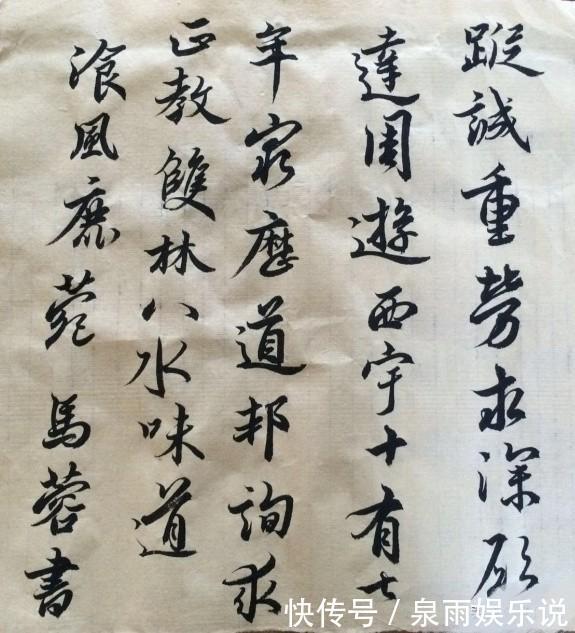 蹤誠重勞求深願
達周遊西宇十有七
年窮歷道邦詢求
正教雙林八水味道
湌風鹿菀 馬蓉書
快传号 / 泉雨娱乐说